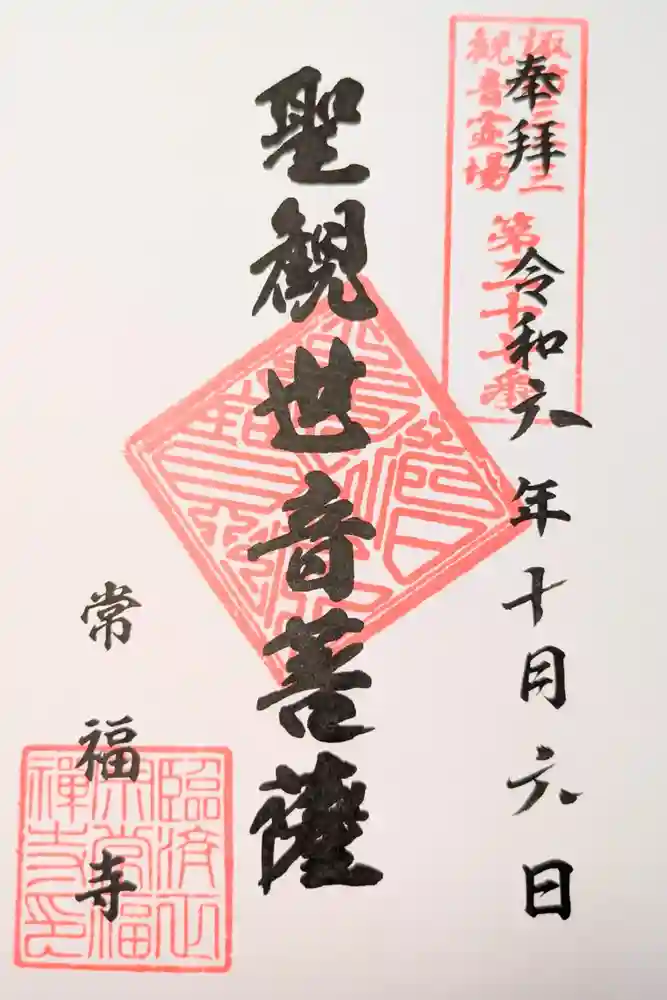 奉拝
令和六年十月六日
諏訪三十三
観音霊場
第二十七番
聖観世音菩薩
常福寺
臨済正
宗常福
禅寺印